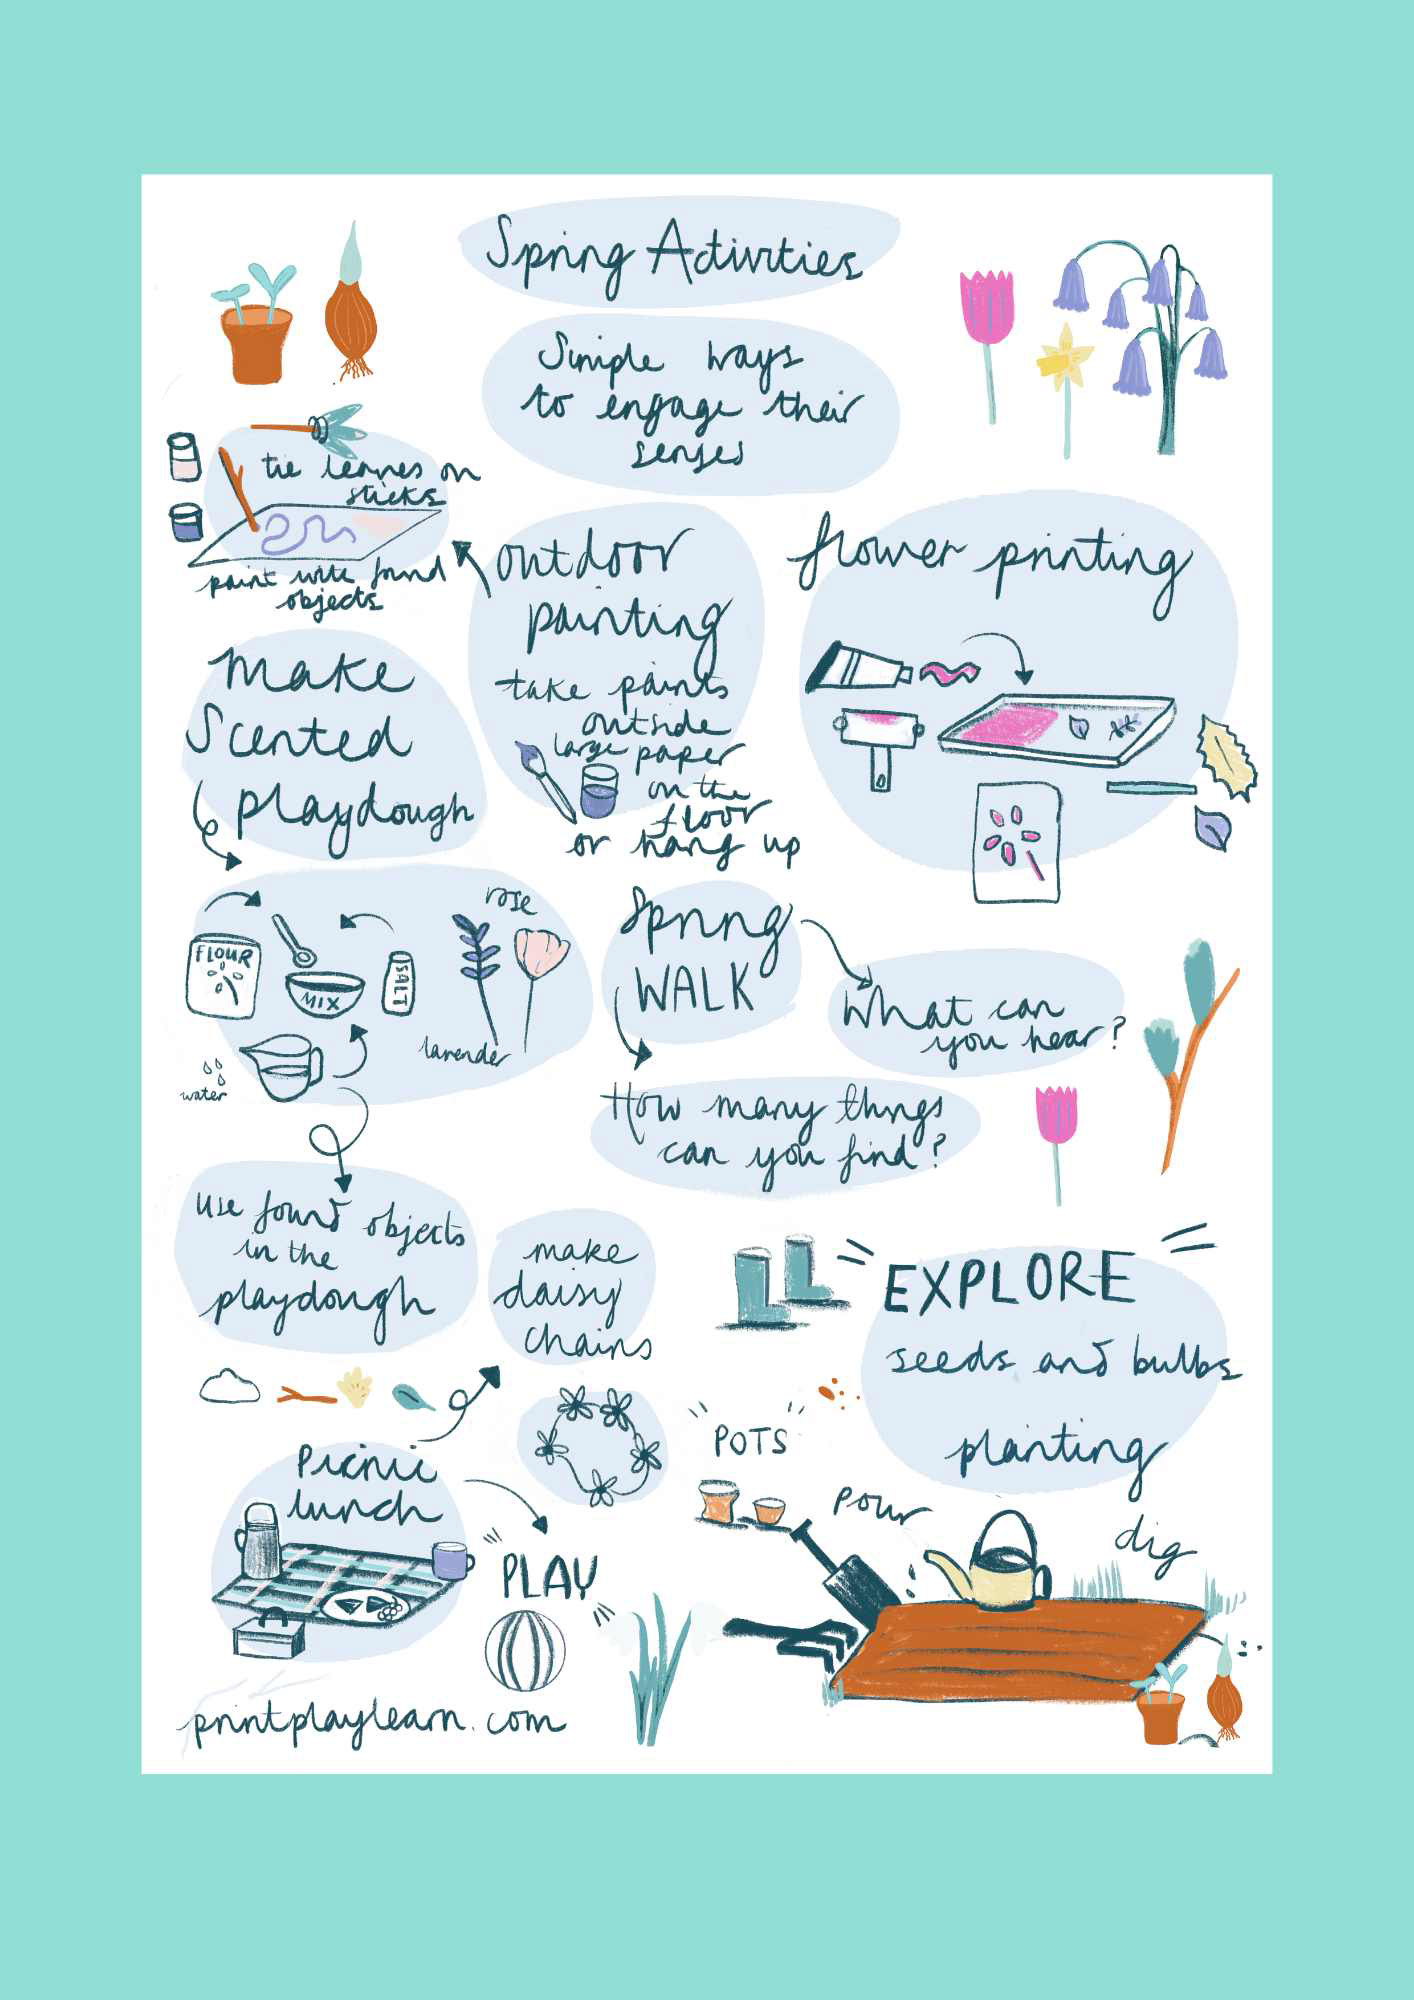 Spring Activities
Simple ways
to engage their
senses
tie leaves on
sticks
paint with found
objects
outdoor
painting
take paints
outside
large paper
on the
floor
or hang up
flower printing
Make
Scented
playdough
FLOUR
MIX
SALT
rose
lavender
water
Spring
WALK
What can
you hear?
How many things
can you find?
use found objects
in the
playdough
make
daisy
chains
EXPLORE
seeds and bulbs
planting
POTS
pour
dig
Picnic
lunch
PLAY
printplaylearn.com